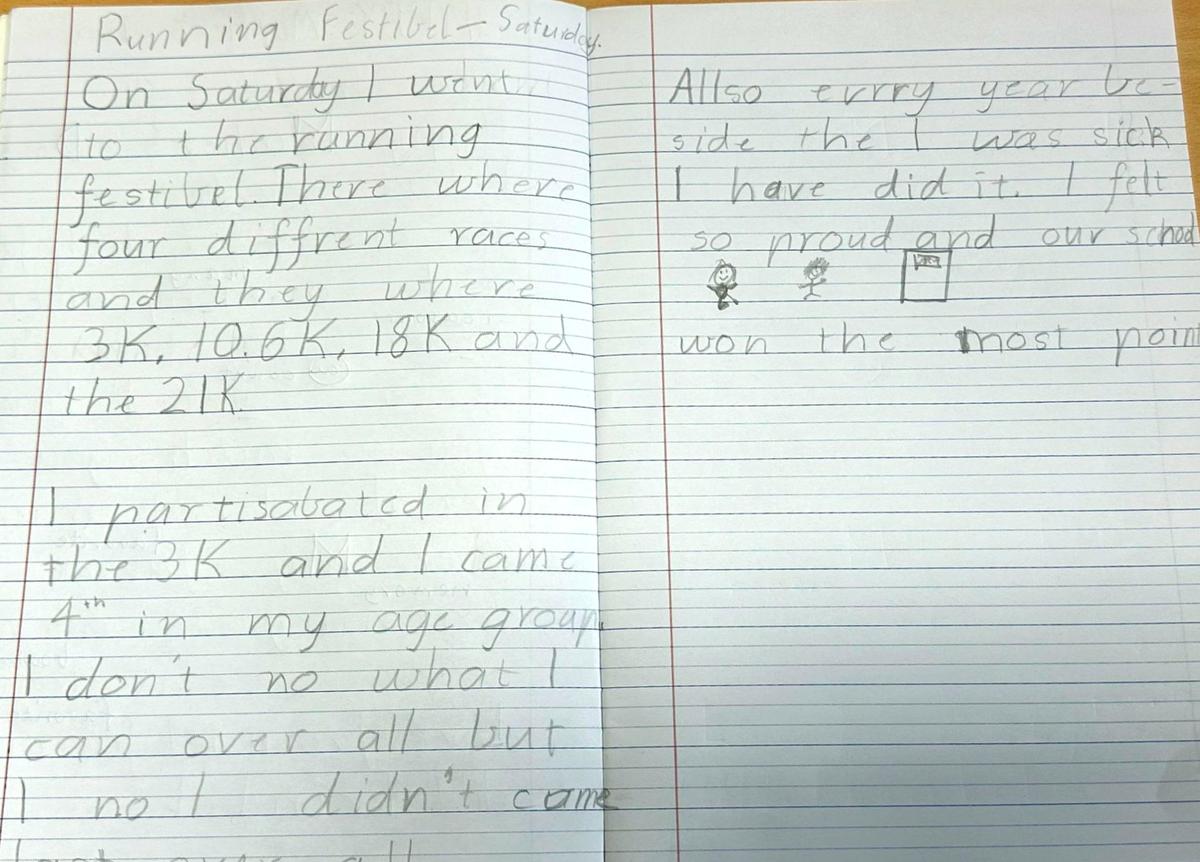 Running Festibel - Saturday.
On Saturday I went
to the running
festibel. There where
four diffrent races
and they where
3K, 10.6K, 18K and
the 21K
I partisabated in
the 3K and I came
4th in my age group.
I don't no what I
can over all but
I no I didn't came
last over all
Allso evrry year be-
side the I was sick
I have did it. I felt
so proud and our school
won the most poin